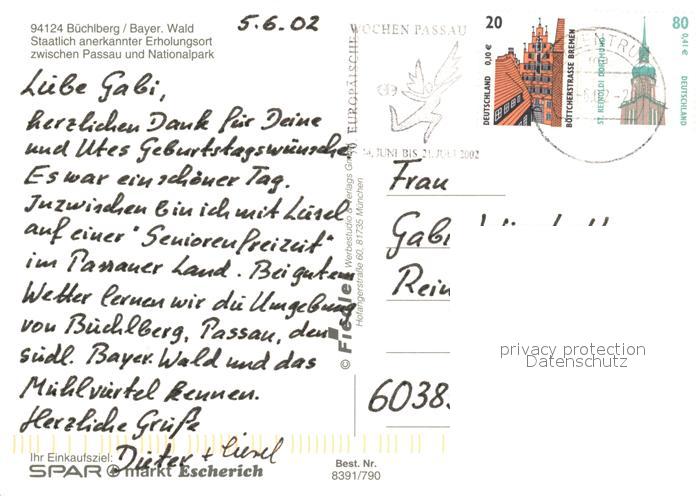 94124 Büchlberg / Bayer. Wald
Staatlich anerkannter Erholungsort
zwischen Passau und Nationalpark
5.6.02
Liebe Gabi,
herzlichen Dank für Deine
und Utes Geburtstagswünsche.
Es war ein schöner Tag.
Inzwischen bin ich mit Liesel
auf einer "Seniorenfreizeit"
im Passauer Land. Bei gutem
Wetter lernen wir die Umgebung
von Büchlberg, Passau, den
südl. Bayer. Wald und das
Mühlviertel kennen.
Herzliche Grüße
Dieter + Liesel
Ihr Einkaufsziel:
SPAR markt Escherich
Best. Nr.
8391/790
© Fiedler Werbestudio & Verlags GmbH
Hofangerstraße 60, 81735 München
50. EUROPÄISCHE
WOCHEN PASSAU
JUNI BIS 21. JULI 2002
20
0,10 €
DEUTSCHLAND
BÖTTCHERSTRASSE BREMEN
80
0,41 €
ST. REINOLDI DORTMUND
DEUTSCHLAND
Frau
Gabi
Rein
6038
privacy protection
Datenschutz